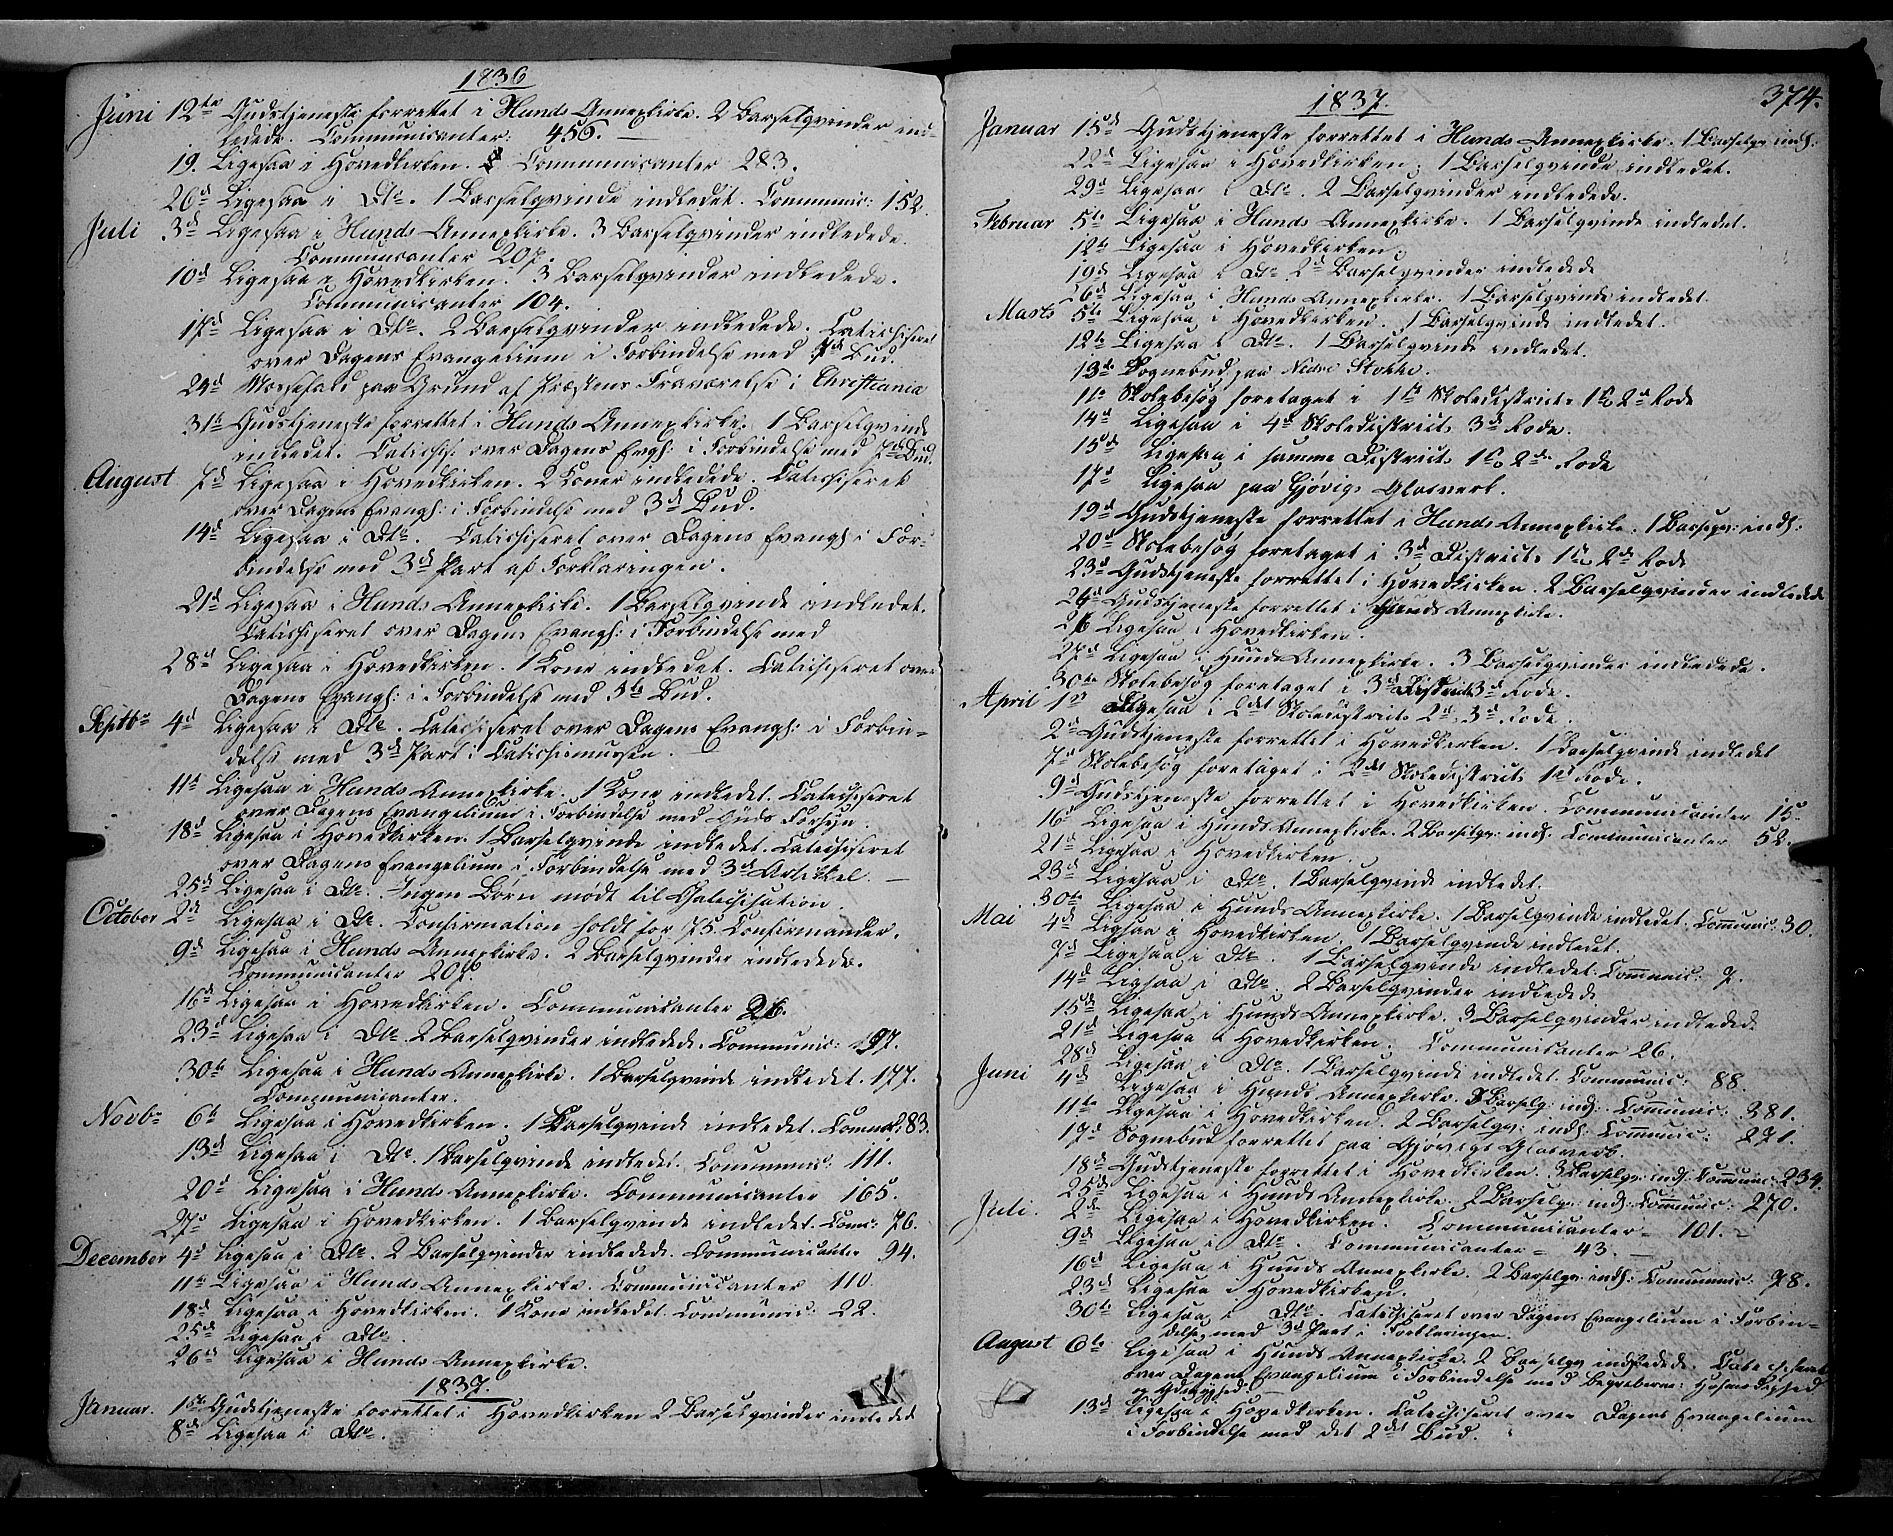 1836
Juni 12te Gudstjeneste forrettet i Hunds Annexkirke. 2 Barselqvinder ind-
ledede. Communicanter: 456. —
19. Ligesaa i Hovedkirken. Communicanter 283.
26d Ligesaa i Do. 1 Barselqvinde indledet. Communic: 152.
Juli 3d Ligesaa i Hunds Annexkirke. 3 Barselqvinder indledede.
Communicanter 207.
10d Ligesaa i Hovedkirken. 3 Barselqvinder indledede.
Communicanter 104.
17d Ligesaa i Do. 2 Barselqvinder indledede. Catechiseret
over Dagens Evangelium i Forbindelse med Bud.
24d Messefald paa Grund af Præstens Fraværelse i Christiania
31te Gudstjeneste forrettet i Hunds Annexkirke. 1 Barselqvinde
indledet. Catechis: over Dagens Evgh: i Forbindelse med Bud.
August 7d Ligesaa i Hovedkirken. 2 Koner indledede. Catechiseret
over Dagens Evangh: i Forbindelse med 3d Bud.
14d Ligesaa i Do. Catechiseret over Dagens Evangh i For-
bindelse med 3d Part af Forklaringen.
21d Ligesaa i Hunds Annexkirke. 1 Barselqvinde indledet.
Catechiseret over Dagens Evangh: i Forbindelse med
28d Ligesaa i Hovedkirken. 1 Kone indledet. Catechiseret over
Dagens Evangh: i Forbindelse med 5te Bud.
Septbr 4d Ligesaa i Do. Catechiseret over Dagens Evangh: i Forbin-
delse med 3d Part i Catechismussen.
11te Ligesaa i Hunds Annexkirke. 1 Kone indledet. Catechiseret
over Dagens Evangelium i Forbindelse med Guds Forsyn.
18d Ligesaa i Hovedkirken. 1 Barselqvinde indledet. Catechiseret
over Dagens Evangelium i Forbindelse med 3d Artikkel. —
25d Ligesaa i Do. Ingen Børn mødt til Catechisation.
October 2d Ligesaa i Do. Confirmation holdt for 75 Confirmander.
9d Ligesaa i Hunds Annexkirke. 2 Barselqvinder indledede.
Communicanter 207.
16d Ligesaa i Hovedkirken. Communicanter 26.
23d Ligesaa i Do. 2 Barselqvinder indledede. Communic: 197.
30te Ligesaa i Hunds Annexkirke. 1 Barselqvinde indledet. 177.
Communicanter.
Novbr 6te Ligesaa i Hovedkirken. 1 Barselqvinde indledet. 83.
13d Ligesaa i Do. 1 Barselqvinde indledet. Communic: 111.
20d Ligesaa i Hunds Annexkirke. Communicanter 165.
27d Ligesaa i Hovedkirken. 1 Barselqvinde indledet. Comm: 76.
December 4d Ligesaa i Do. 2 Barselqvinder indledede. Communicanter 94.
11te Ligesaa i Hunds Annexkirke. Communicanter 110.
18d Ligesaa i Hovedkirken. 1 Kone indledet. Communic: 22.
25d Ligesaa i Do.
26d Ligesaa i Hunds Annexkirke.
1837.
Januar. 1ste Gudstjeneste forrettet i Hovedkirken 2 Barselqvinder indledede
8d Ligesaa i Do.
374.
1837.
Januar 15d Gudstjeneste forrettet i Hunds Annexkirke. 1 Barselqv: indl:
22d Ligesaa i Hovedkirken. 1 Barselqvinde indledet.
29d Ligesaa i Do. 2 Barselqvinder indledede.
Februar 5te Ligesaa i Hunds Annexkirke. 1 Barselqvinde indledet.
12te Ligesaa i Hovedkirken.
19d Ligesaa i Do. 2 Barselqvinder indledede
26d Ligesaa i Hunds Annexkirke. 1 Barselqvinde indledet.
Marts 5te Ligesaa i Hovedkirken. 1 Barselqvinde indledet.
12te Ligesaa i Do. 1 Barselqvinde indledet.
13de Sognebud paa Nedre Stokke.
11te Skolebesøg foretaget i 1ste Skoledistricts 1ste & 2d Rode
14d Ligesaa i 4d Skoledistricts 3d Rode.
15d Ligesaa i samme Districts 1ste & 2de Rode
17d Ligesaa paa Gjøvigs Glasverk.
19d Gudstjeneste forrettet i Hunds Annexkirke. 1 Barselqv: indl:
20d Skolebesøg foretaget i 3d Districts 1ste & 2de Rode
23d Gudstjeneste forrettet i Hovedkirken. 2 Barselqvinder indledede
24d Gudstjeneste forrettet i Hunds Annexkirke.
26 Ligesaa i Hovedkirken.
27d Ligesaa i Hunds Annexkirke. 3 Barselqvinder indledede.
30te Skolebesøg foretaget i 3d Districts 3d Rode.
April 1ste Ligesaa i 2det Skoledistricts 2d, 3d Rode.
2d Gudstjeneste forrettet i Hovedkirken. 1 Barselqvinde indledet
7d Skolebesøg foretaget i 2det Skoledistricts 1ste Rode.
9d Gudstjeneste forrettet i Hovedkirken Communicanter 15.
16d Ligesaa i Hunds Annexkirke. 2 Barselqv: indl: Communicanter 52.
21d Ligesaa i Hovedkirken.
23d Ligesaa i Do. 1 Barselqvinde indledet.
30te Ligesaa i Hunds Annexkirke. 1 Barselqvinde indledet. Communic: 30.
Mai 4d Ligesaa i Hovedkirken 1 Barselqvinde indledet.
7d Ligesaa i Do. 1 Barselqvinde indledet. Communic: 9.
14d Ligesaa i Do. 2 Barselqvinder indledede
15de Ligesaa i Hunds Annexkirke. 3 Barselqvinder indledede
21d Ligesaa i Hovedkirken. Communicanter 26.
28d Ligesaa i Do. 1 Barselqvinde indledet. Communic: 88.
Juni 4d Ligesaa i Hunds Annexkirke. 3 Barselq: indl: Communic: 381.
11te Ligesaa i Hovedkirken. 2 Barselqv: indl: Communic: 271.
17d Sognebud forrettet paa Gjøvigs Glasverk.
18d Gudstjeneste forrettet i Hovedkirken. 3 Barselqv: indl: Communic: 234.
25d Ligesaa i Hunds Annexkirke. 2 Barselqv: indl: Communic: 270.
Juli. 2d Ligesaa i Hovedkirken. Communicanter — 101. —
9d Ligesaa i Do. Communicanter — 43. —
16d Ligesaa i Hunds Annexkirke. 2 Barselqv: indl: Communic: 98.
23d Ligesaa i Hovedkirken.
30te Ligesaa i Do. Catechiseret over Dagens Evangelium i Forbin-
delse med 3d Part i Forklaringen.
August 6te Ligesaa i Hunds Annexkirke. 2 Barselqv indledede. Catechiseret
over Dagens Evangelium i Forbindelse med Begreberne:
13d Ligesaa i Hovedkirken. Catechiseret over Dagens Evangelium
i Forbindelse med det 2det Bud.